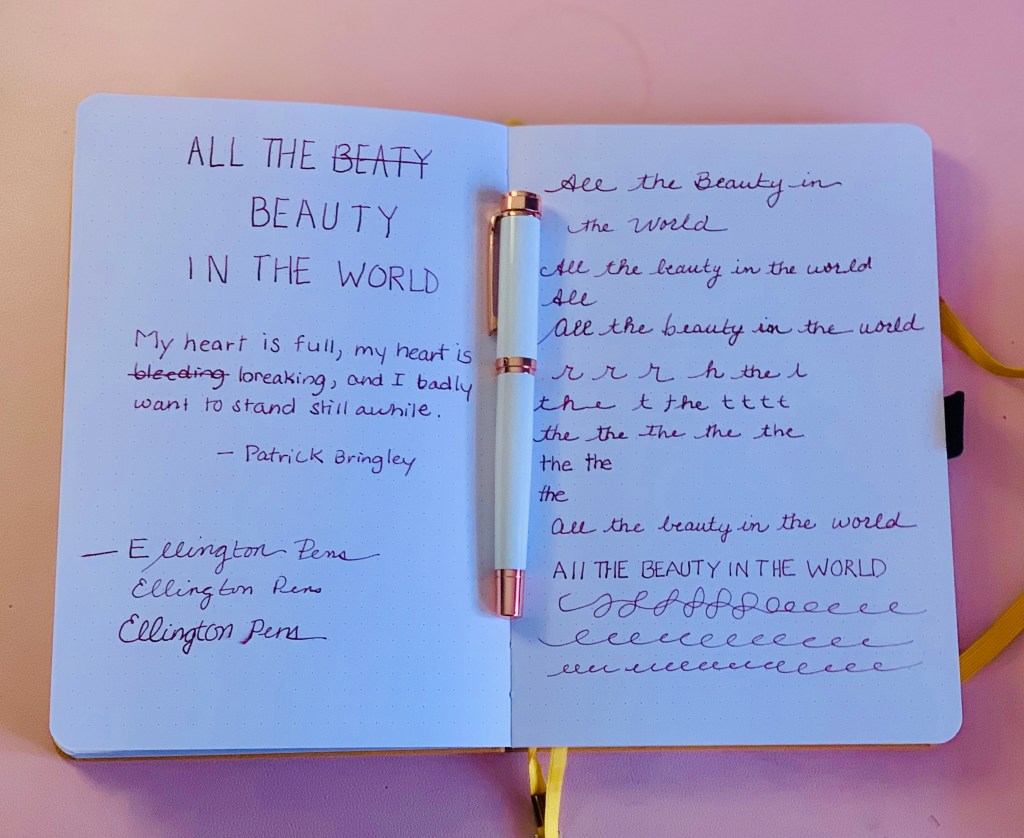 ALL THE BEATY
BEAUTY
IN THE WORLD
My heart is full, my heart is
bleeding breaking, and I badly
want to stand still awhile.
— Patrick Bringley
— Ellington Pens
Ellington Pens
Ellington Pens
All the Beauty in
the World
All the beauty in the world
All
all the beauty in the world
r r r h the l
the t the t t t t
the the the the the
the the
the
all the beauty in the world
All THE BEAUTY IN THE WORLD